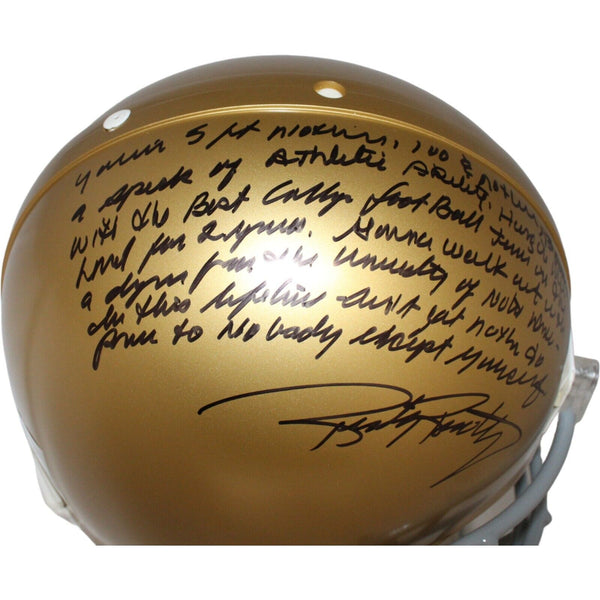 You're 5 ft nothin, 100 & nothin,
a speck of Athletic Ability. Hung in
with the Best College football team in the
land for 2 years. Gonna walk out with
a degree from the University of Notre Dame -
In this lifetime don't get nothin to
prove to Nobody except yourself
Rudy Ruettiger